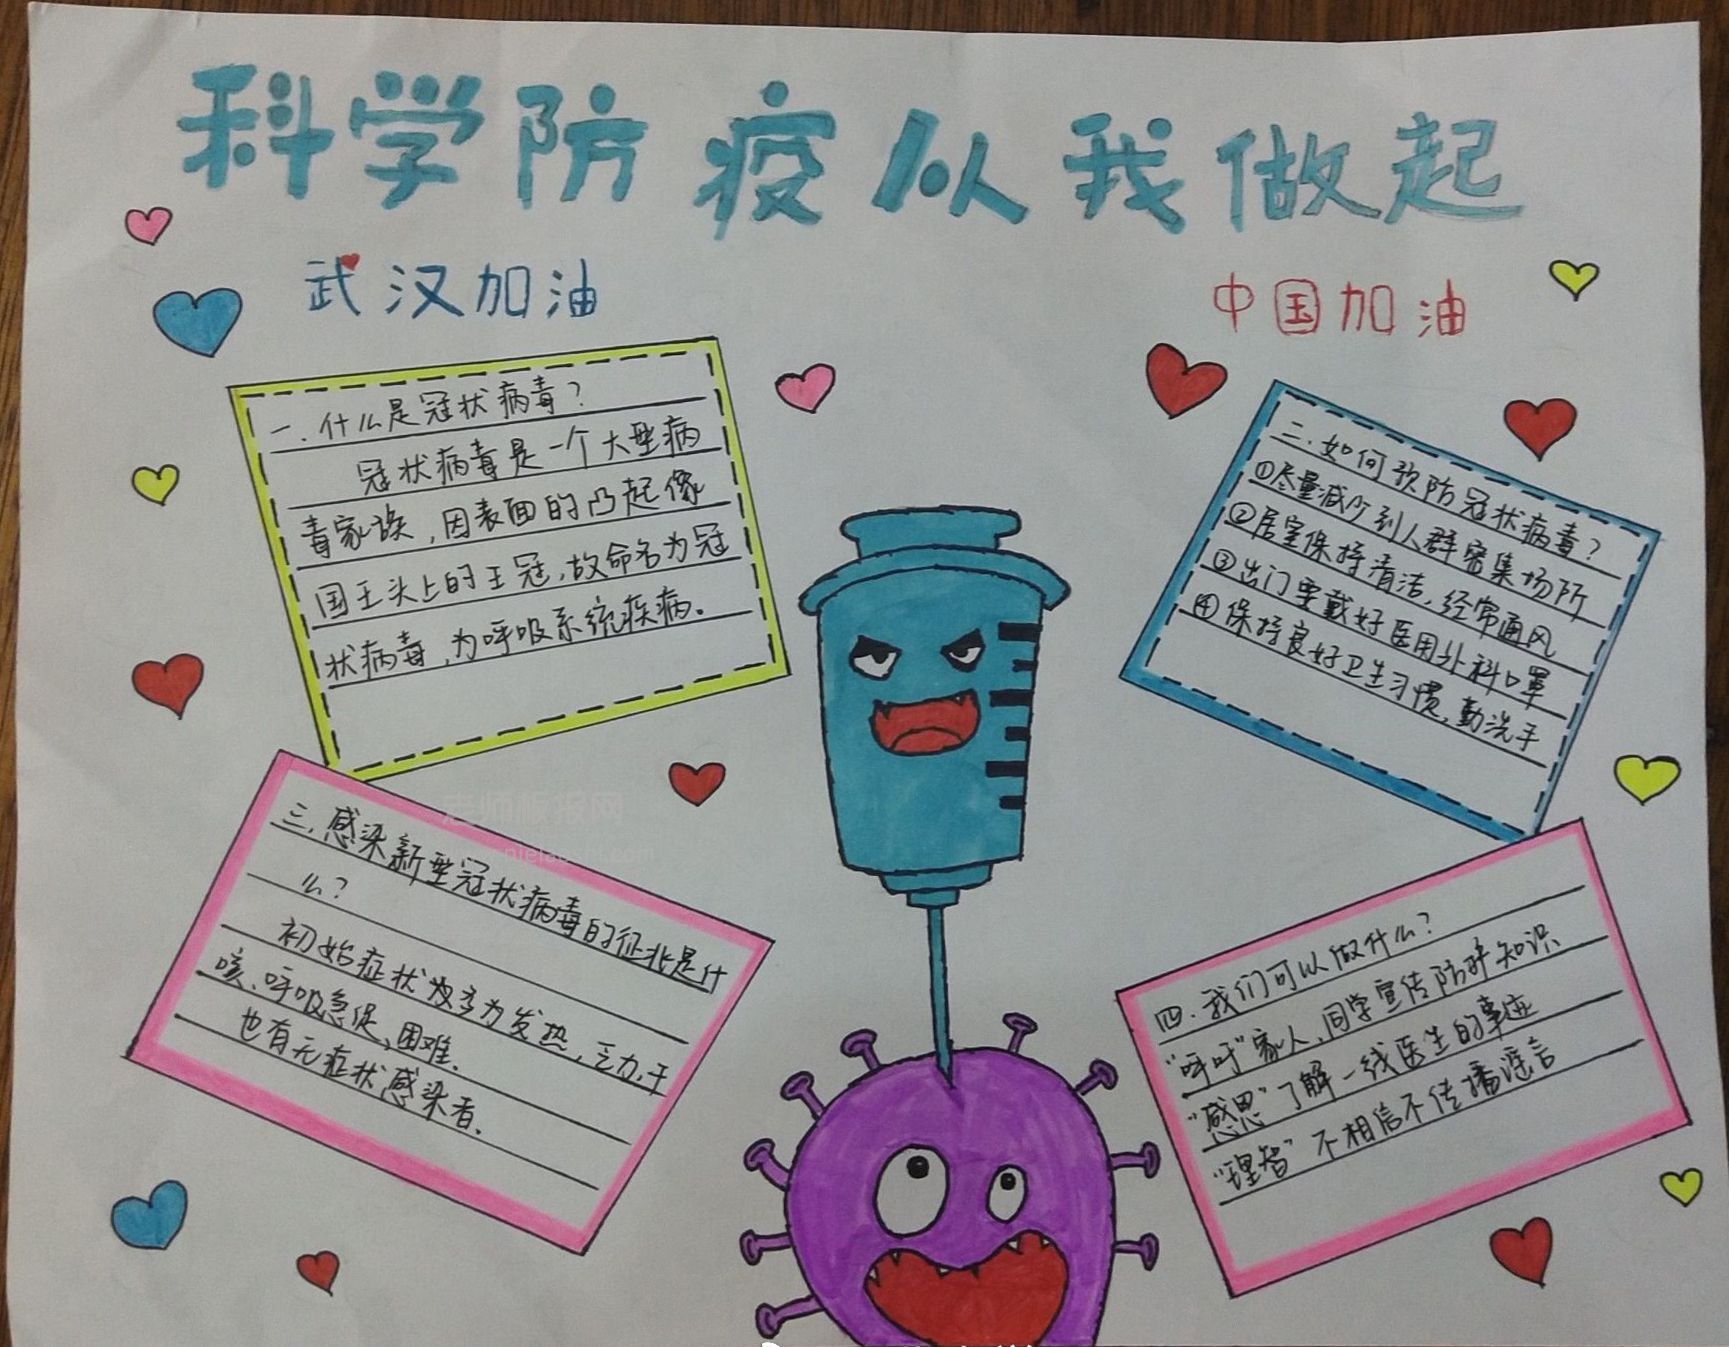 科学防疫从我做起
武汉加油
中国加油
一.什么是冠状病毒?
冠状病毒是一个大型病
毒家族,因表面的凸起像
国王头上的王冠,故命名为冠
状病毒,为呼吸系统疾病.
二.如何预防冠状病毒?
①尽量减少到人群密集场所
②居室保持清洁,经常通风
③出门要戴好医用外科口罩
④保持良好卫生习惯,勤洗手
三.感染新型冠状病毒的征兆是什
么?
初始症状为发热,乏力,干
咳、呼吸急促、困难.
也有无症状感染者.
四.我们可以做什么?
"呼吁"家人,同学宣传防护知识
"感恩"了解一线医生的事迹
"理智"不相信不传播谣言
老师板报网